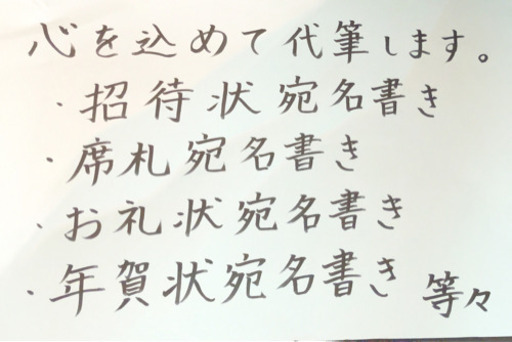 心を込めて代筆します。
・招待状宛名書き
・席札宛名書き
・お礼状宛名書き
・年賀状宛名書き 等々